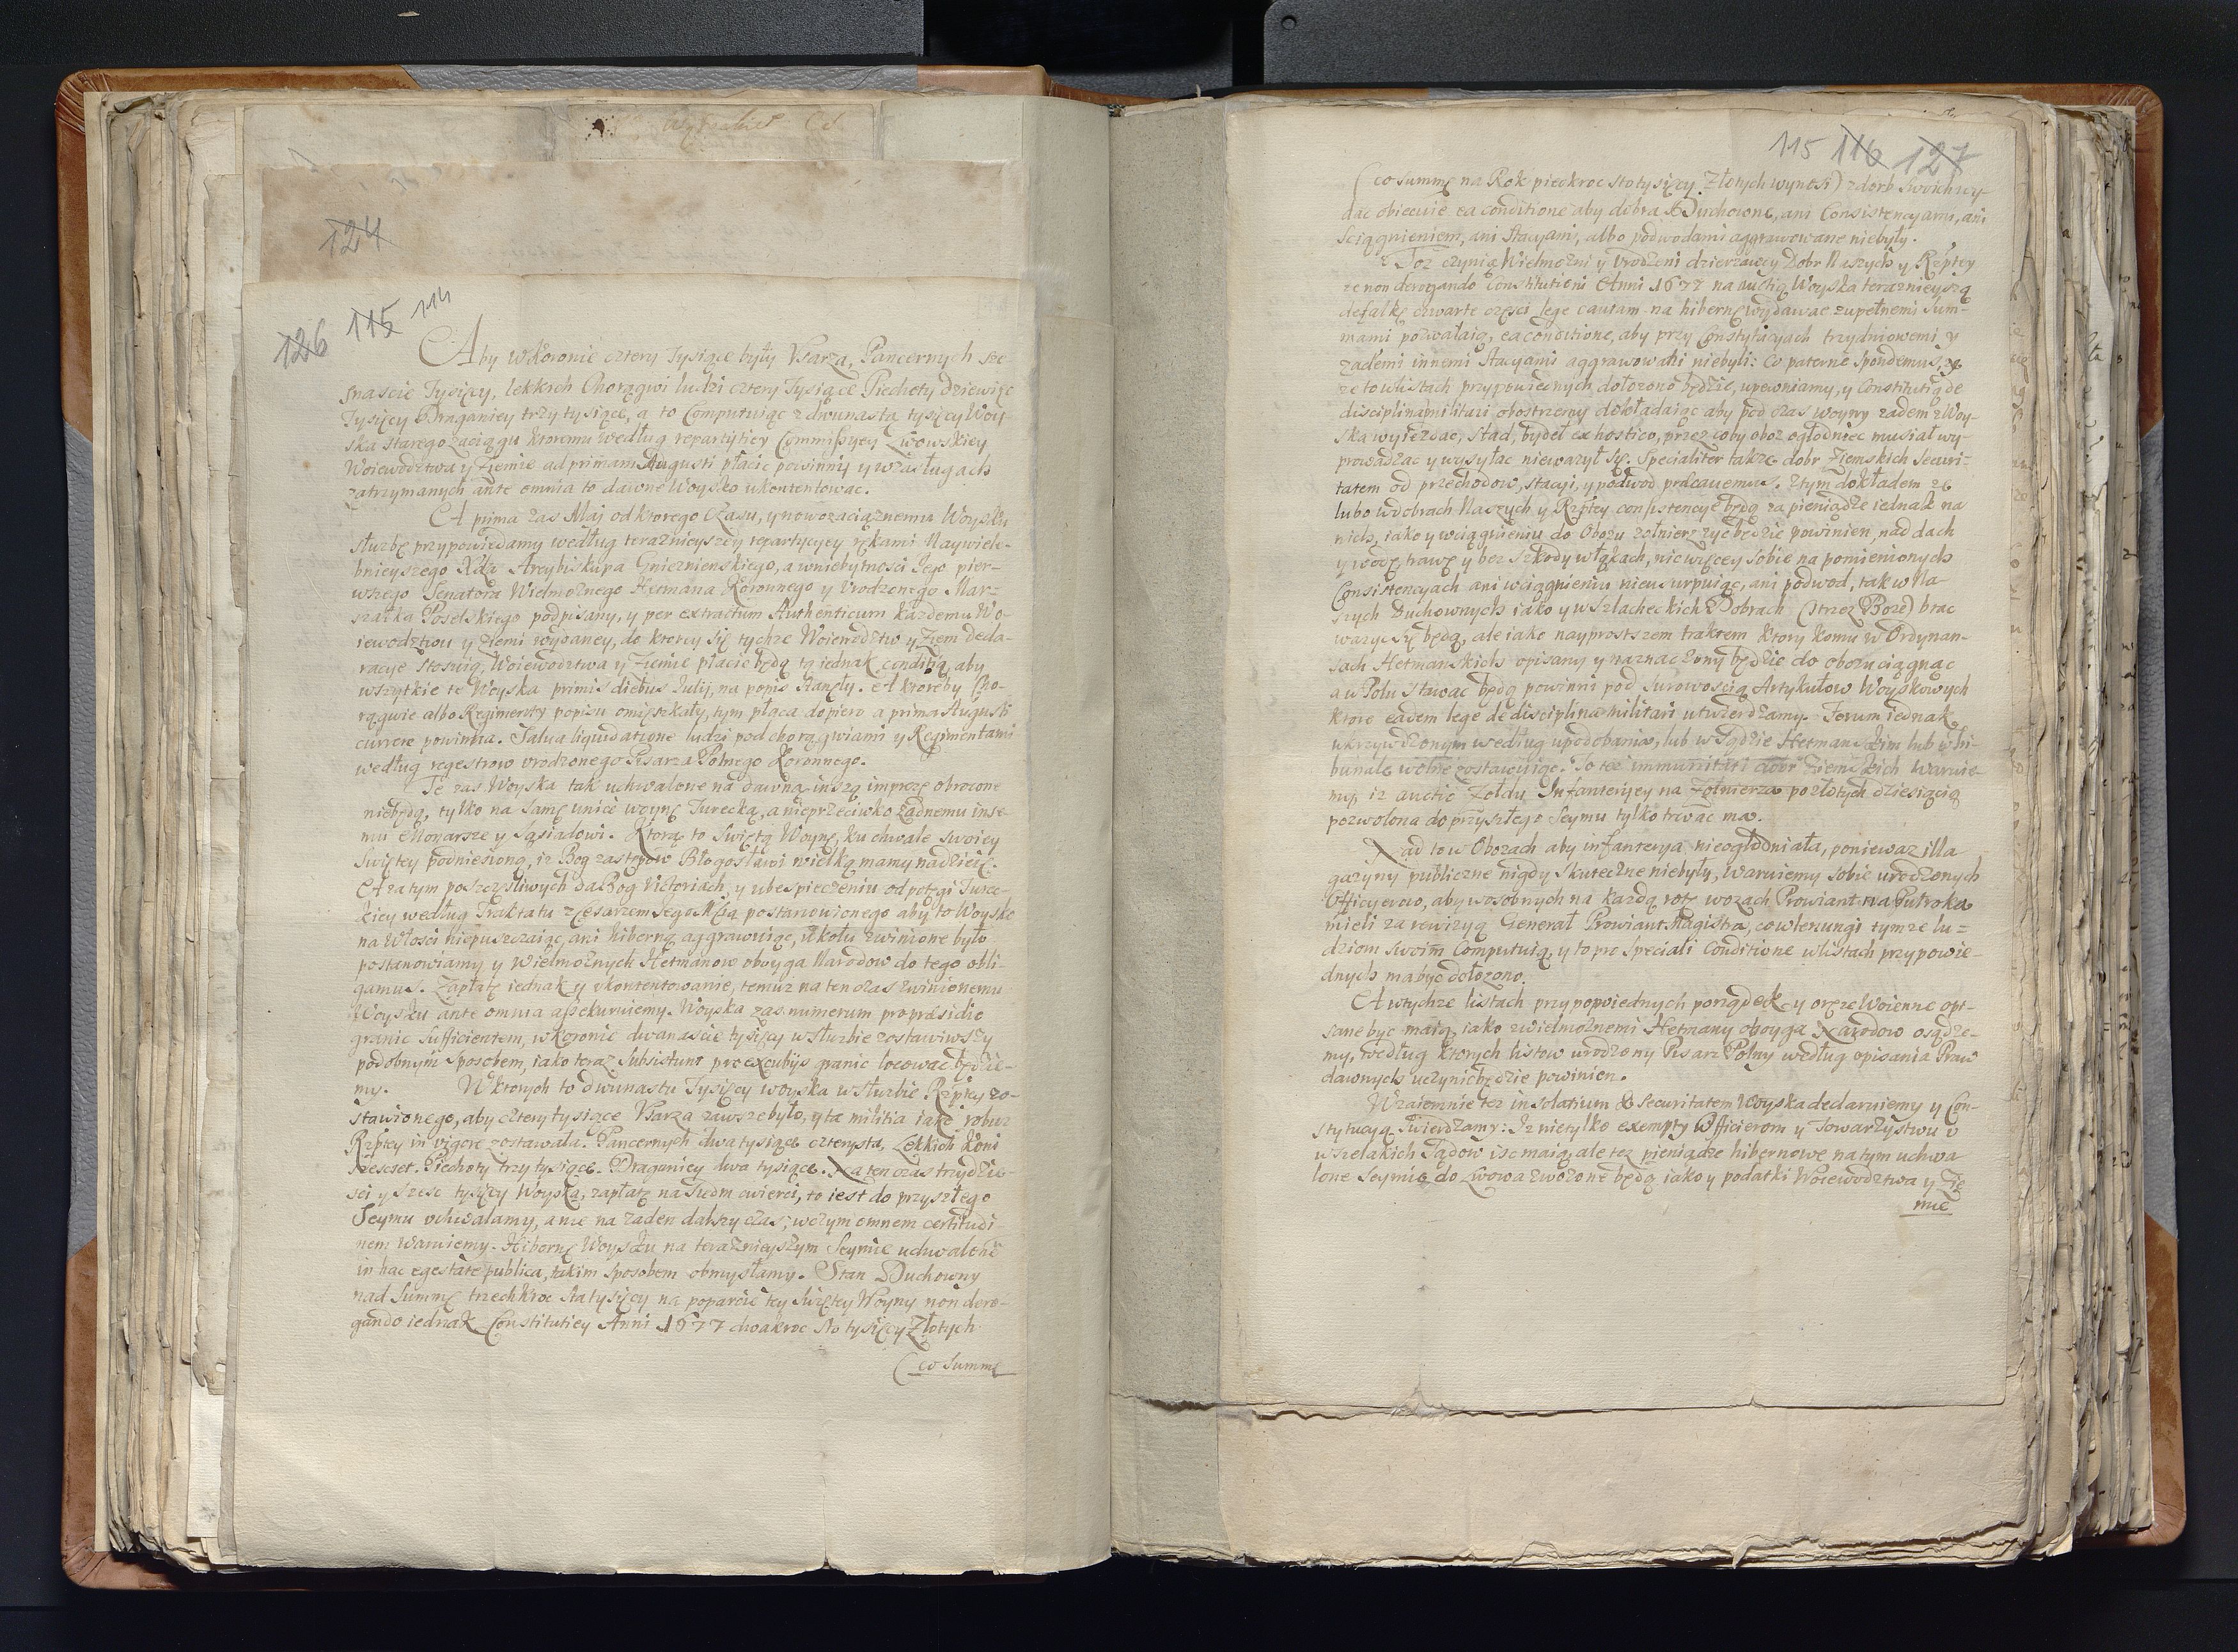 124
126 115 114
Aby w Koronie cztery Tysiące były Vsarza, Pancernych sze-
snascie Tysięcy, lekkich Chorągwi ludzi cztery Tysiące Piechoty dziewięc
Tysięcy Draganiey trzy tysiące, a to Computuiąc z dwunastą tysięcy Woy-
ska starego zaciągu ktoremu według repartitiey Commissyey Lwowskiey
Woiewodztwa y Ziemie ad primam Augusti płacic powinny y w zasługach
zatrzymanych ante omnia to dawne Woysko ukontentowac.
A prima zas Maj od ktorego czasu, y nowozaciążnemu Woysku
służbę przypowiedamy według teraznieyszey repartycyey rękami Naywiele-
bnieyszego Xdza Arcybiskupa Gnieznienskiego, a w niebytnosci Jego pier-
wszego Senatora Wielmożnego Hetmana Koronnego y Vrodzonego Mar-
szałka Poselskiego podpisany, y per extractum Authenticum kazdemu Wo-
iewodztwu y Ziemi wydaney, do ktorey się tychze Woiewodztw y Ziem decla-
racye stosuią, Woiewodztwa y Ziemie płacic będą tą iednak conditią, aby
wszytkie te Woyska primis diebus Julij, na popis stanęły. A ktoreby Cho-
rągwie albo Regimenty popisu omięszkały, tym płaca dopiero a prima Augusti
currere powinna. Salua liquidatione ludzi pod chorągwiami y Regimentami
według regestrow vrodzonego Pisarza Polnego Koronnego.
Te zas Woyska tak uchwalone na dawną inszą imprezę obrocone
niebędą, tylko na samę unicè woynę Turecką, a nieprzeciwko żadnemu insze-
mu Monarsze y Sąsiadowi. Ktorą to Swiętą Woynę, ku chwale swoiey
Swiętey podniesioną, iz Bog zastępow Błogosławi wielką mamy nadzieię.
A zatym poszczęsliwych da Bog Victoriach, y ubespieczeniu od potęgi Turec-
kiey według Traktatu z Cesarzem Jego Mscią postanowionego aby to Woysko
na Włosci niepuszczaiąc, ani hiberną aggrawuiąc, w kołu zwinione było
postanowiamy y Wielmożnych Hetmanow oboyga Narodow do tego obli-
gamus. Zapłatę iednak y vkontentowanie, temuz na ten czas zwinionemu
Woysku ante omnia assekuruiemy. Woyska zas numerum pro præsidio
granic sufficientem, w Koronie dwanascie tysięcy w służbie zostawiwszy
podobnym sposobem, iako teraz subsistunt pro excubijs granic locować będzie-
my. W ktorych to dwunastu Tysięcy woyska w służbie Rzptey zo-
stawionego, aby cztery tysiące Vsarza zawsze było, y ta militia iako robur
Rzptey in vigore zostawała. Pancernych dwa tysiące czterysta, Lekkich koni
szescset. Piechoty trzy tysiące. Draganiey dwa tysiące. Na ten czas trzydzie-
sci y szesc tysięcy Woyska, zapłatę na siedm cwierci, to iest do przyszłego
Seymu uchwalamy, a nie na żaden dalszy czas; w czym omnem certitudi-
nem waruiemy. Hibernę Woysku na teraznieyszym Seymie uchwaloną
in hac egestate publica, takim sposobem obmyslamy. Stan Duchowny
nad Summę trzechkroc sta tysięcy na poparcie tey Swiętey Woyny non dero-
gando iednak Constitutiey Anni 1677 dwakroc sto tysięcy Złotych
(co Summę
115 116 127
(co Summę na Rok pieckroc sto tysięcy Złotych wynosi) z dobr swoich wy-
dac obiecuie ea conditione aby dobra Duchowne, ani Consistencyami, ani
Sciągnieniem, ani Stacyami, albo podwodami aggrawowane niebyły.
Toz czynią Wielmożni y Vrodzeni dzierzawcy Dobr Naszych y Rzptey
ze non derogando Constitutioni Anni 1677 na auctią Woyska teraznieyszą
defalkę czwarte częsci lege cautam na hibernę wydawac zupełnemi Sum-
mami pozwalaią, ea conditione, aby przy Constytucyach trzydniowemi y
żadnemi innemi Stacyami aggrawowani niebyli: Co paterne spondemus,
ze to w listach przypowiednych dołozono będzie, upewniamy, y Constitutią de
disciplina militari obostrzemy dokładaiąc aby pod czas woyny żaden z Woy-
ska wyieżdzac, stad, bydeł ex hostico, przez coby oboz ogłodniec musiał wy-
prowadzac y wysyłac niewazył się. Specialiter takze dobr Ziemskich Securi-
tatem od przechodow, stacji, y podwod præcauemus. Z tym dokładem ze
lubo w dobrach Naszych y Rzptey consistencye będą za pieniądze iednak na
nich, iako y w ciągnieniu do Obozu żołnierz życ będzie powinien, nad dach
y wodę, trawę y bez szkody w łąkach, nie więcey sobie na pomienionych
Consistencyach ani w ciągnieniu nieusurpuiąc, ani podwod, tak w Na-
szych Duchownych iako y w Szlacheckich Dobrach (strzez Boze) brac
wazyc się będą, ale iako nayprostszem traktem ktory komu w Ordynan-
sach Hetmanskich opisany y naznaczony będzie do obozu ciągnąc
a w Polu stawac będą powinni pod surowoscią Artykułow Woyskowych
ktore eadem lege de disciplina militari utwierdzamy. Forum iednak
ukrzywdzonym według upodobania, lub w Sądzie Hetmanskim lub w Tri-
bunale wolne zostawuiąc. To tez immunitati dobr Ziemskich waruie-
my, iz auctio Żołdu Infanteryey na Żołnierza po złotych dziesiącią
pozwolona do przyszłego Seymu tylko trwac ma.
Nad to w Obozach aby infanterya nieogłodniała, poniewaz illa
gazyny publiczne nigdy skuteczne niebyły, waruiemy sobie urodzonych
Officyerow, aby w osobnych na kazdą rotę wozach Prowiant na Putroka
mieli za rewizyą Generał Prowiant Magistra, co w lenungi tymze lu-
dziom swoim Computuią, y to pro speciali conditione w listach przypowie-
dnych ma byc dołozono.
A w tychze listach przypowiednych porządek y oręze Woienne opi-
sane byc maią, iako z wielmożnemi Hetmany oboyga Narodow osądze-
my, według ktorych listow urodzony Pisarz Polny według opisania Praw
dawnych uczynic będzie powinien.
Wzaiemnie tez in solatium & Securitatem Woyska declaruiemy y Con-
stytucyą twierdzamy: Iz nietylko exempty Officierom y Towarzystwu v
wszelakich Sądow isc maią, ale tez pieniądze hibernowe na tym uchwa
lone Seymie do Lwowa zwożone będą iako y podatki Woiewodztwa y Zie
mie